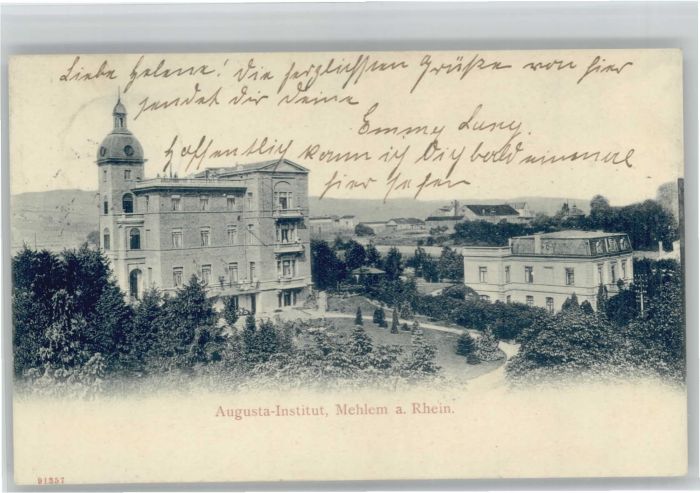 Liebe Helene! Die herzlichsten Grüße von hier
sendet dir deine
Emmy Lung.
Hoffentlich kann ich Dich bald einmal
hier sehen
Augusta-Institut, Mehlem a. Rhein.
91357